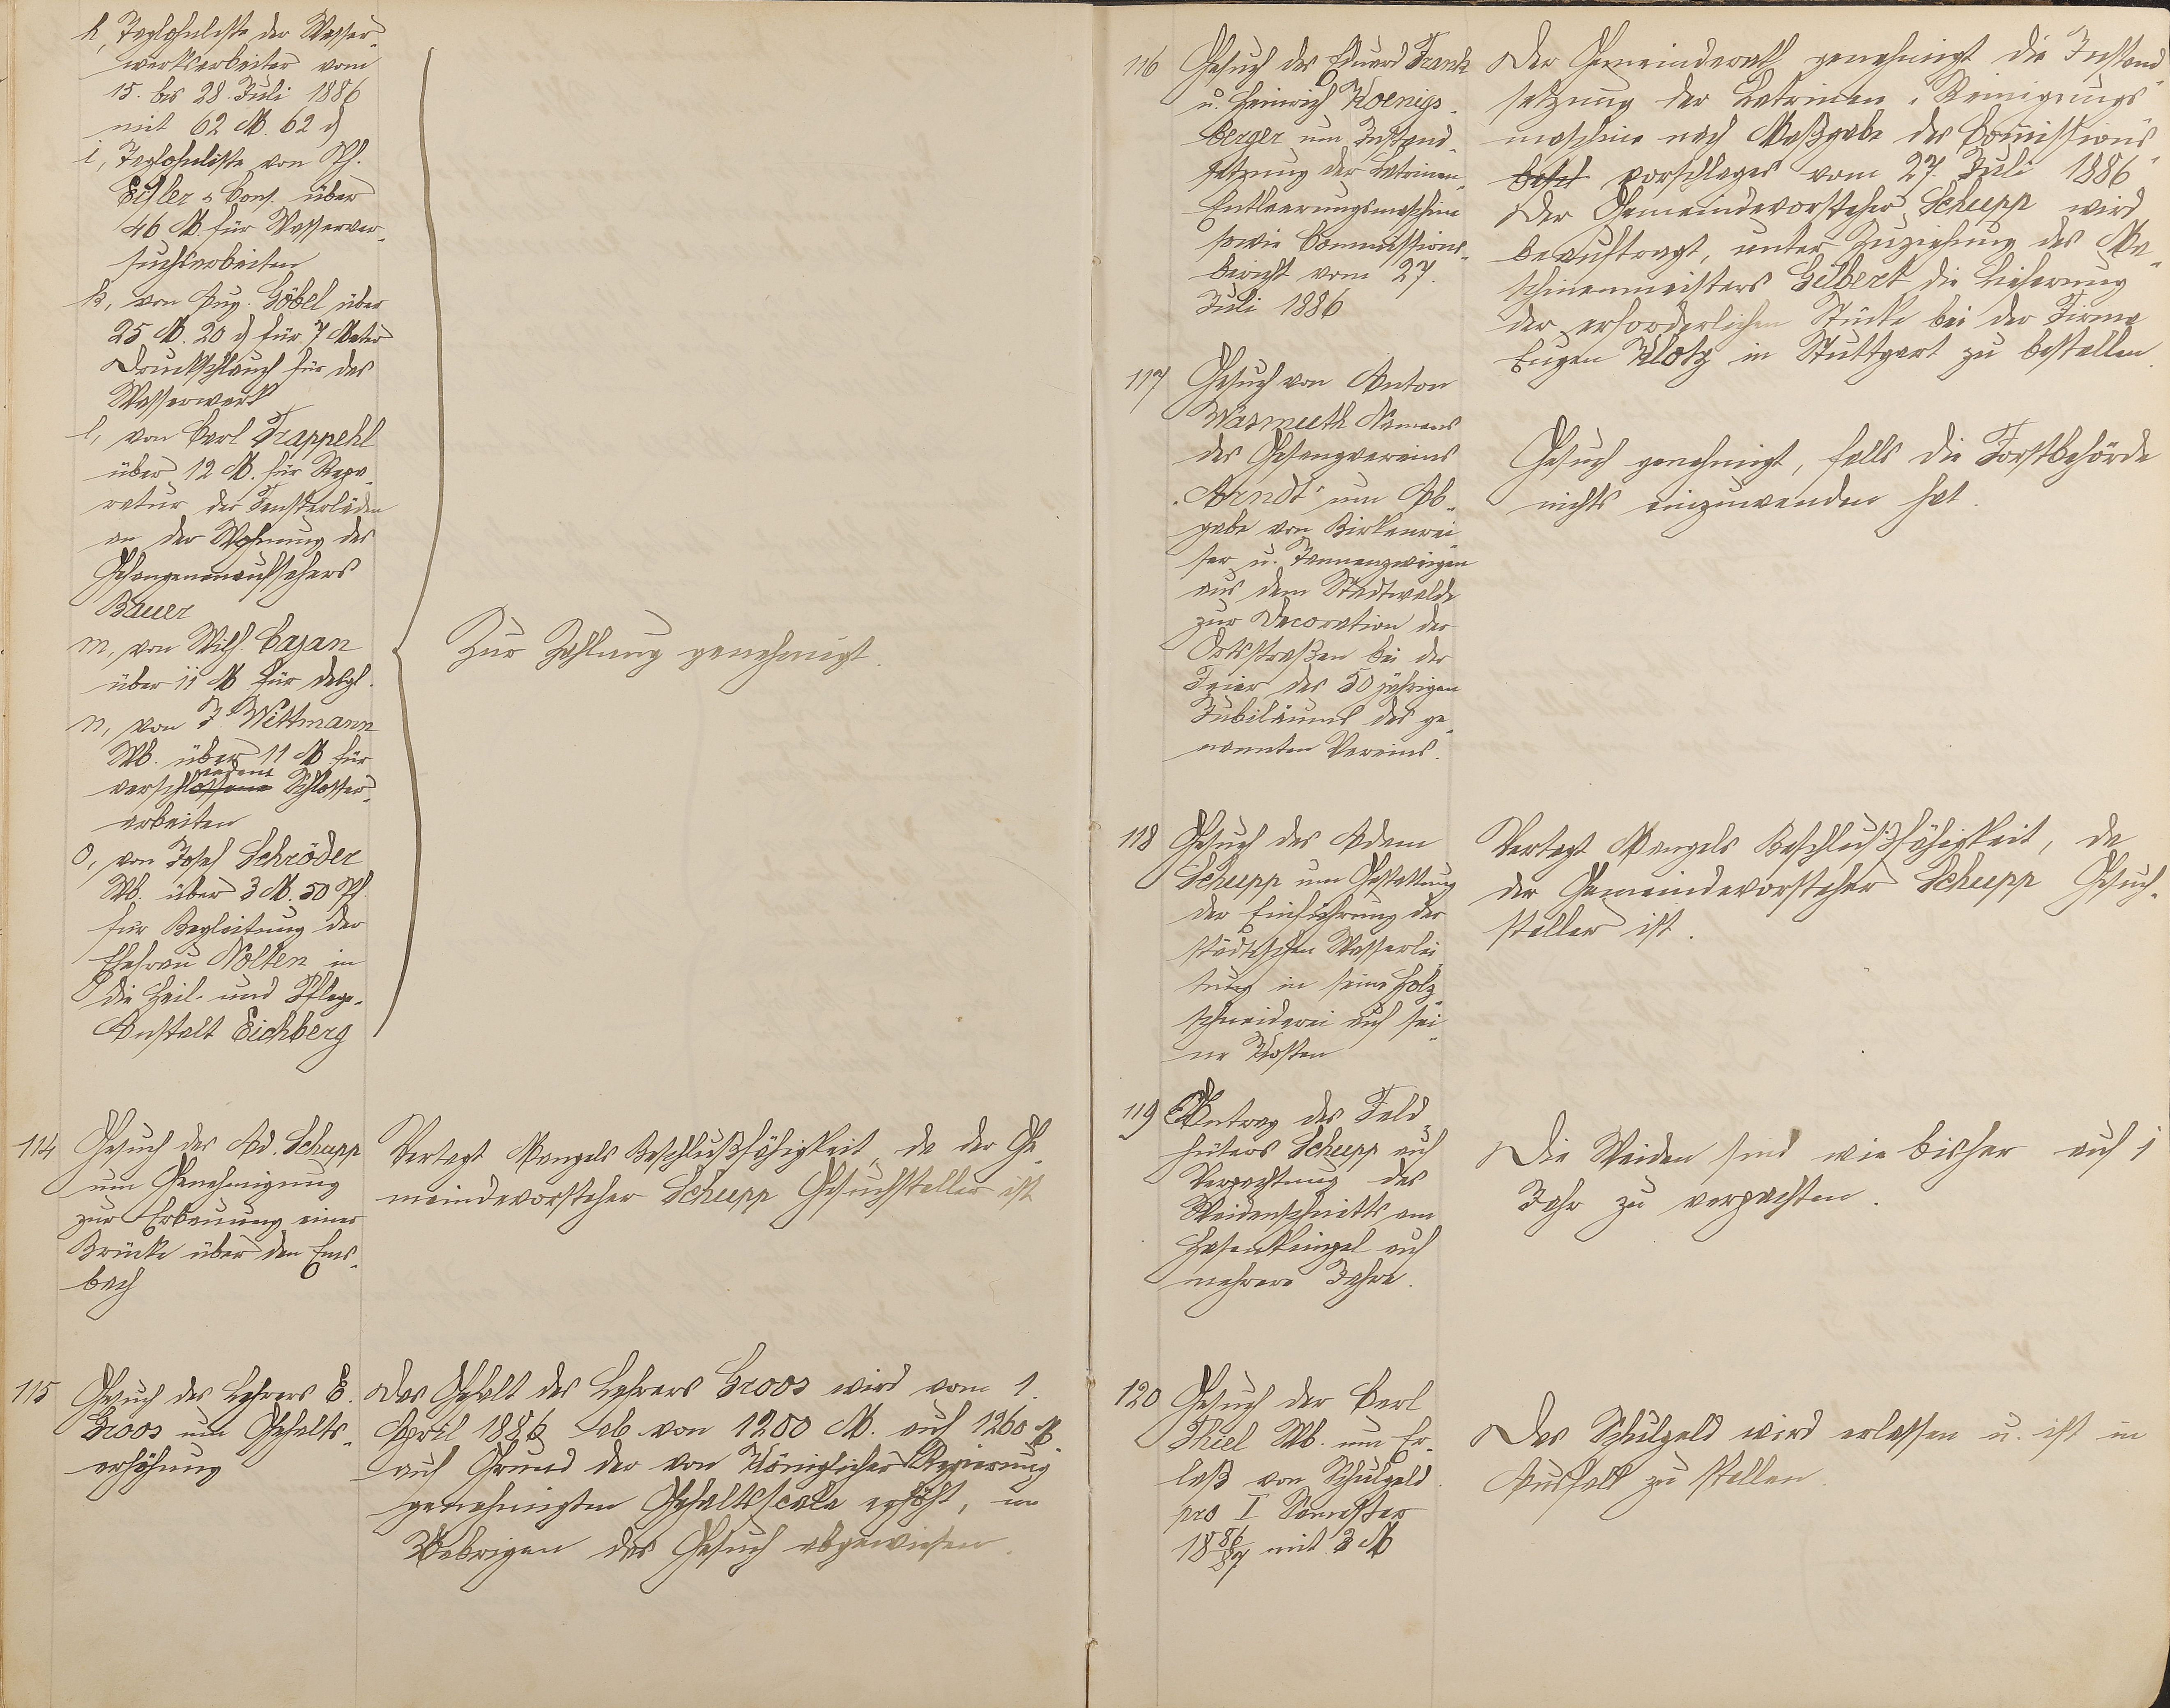 h, Taglohnliste der Wasser-
werksarbeiter vom
15. bis 28. Juli 1886
mit 62 M. 62 d
i, Taglohnliste von Ph.
Eisler & Cons. über
46 M. für Wasserver-
suchsarbeiten
k, von Aug. Göbel über
25 M. 20 d für 7 Meter
Druckschlauch für das
Wasserwerk
l, von Carl Trappehl
über 12 M. für Repa-
ratur der Fensterläden
an der Wohnung des
Gefangenenaufsehers
Bauer
m, von Wilh. Cazan
über 11 M für desgl.
n, von J. Wittmann
Wb. über 11 M für
verschiedene Schlosser-
arbeiten
o, von Josef Schröder
Wb. über 3 M. 50 Pf.
für Begleitung der
Ehefrau Nolten in
die Heil- und Pflege-
Anstalt Eichberg
Zur Zahlung genehmigt.
114 Gesuch des Ad. Schupp
um Genehmigung
zur Erbauung einer
Brücke über den Ems-
bach
Vertagt Mangels Beschlußfähigkeit, da der Ge-
meindevorsteher Schupp Gesuchsteller ist
115 Gesuch des Lehrers E.
Groos um Gehalts-
erhöhung
Das Gehalt des Lehrers Groos wird vom 1.
April 1886 ab von 1200 M. auf 1260 M.
auf Grund der von Königlicher Regierung
genehmigten Gehaltsscala erhöht, im
Uebrigen das Gesuch abgewiesen.
116 Gesuch des Eduard Frank
u. Heinrich Koenigs-
berger um Instand-
setzung der Latrinen-
Entleerungsmaschine
sowie Commissions-
bericht vom 27.
Juli 1886
Der Gemeinderath genehmigt die Instand-
setzung der Latrinen-Reinigungs-
maschine nach Maßgabe des Comissions-
besch vorschlages vom 27. Juli 1886
Der Gemeindevorsteher Schupp wird
beauftragt, unter Zuziehung des Ma-
schinenmeisters Gilbert die Lieferung
der erforderlichen Stücke bei der Firma
Eugen Klotz in Stuttgart zu bestellen.
117 Gesuch von Anton
Wasmuth Namens
des Gesangvereins
"Arndt" um Ab-
gabe von Birkenrei-
ser u. Tannenzweigen
aus dem Stadtwalde
zur Decoration der
Ortsstraßen bei der
Feier des 50 jährigen
Jubiläums des ge-
nannten Vereins.
Gesuch genehmigt, falls die Forstbehörde
nichts einzuwenden hat.
118 Gesuch des Adam
Schupp um Gestattung
der Einführung der
städtischen Wasserlei-
tung in seine Holz-
schneiderei auf sei-
ne Kosten
Vertagt Mangels Beschlußfähigkeit, da
der Gemeindevorsteher Schupp Gesuch-
steller ist.
119 Antrag des Feld-
hüters Schupp auf
Verpachtung des
Weidenschnitts am
Hasenkümpel auf
mehrere Jahre.
Die Weiden sind wie bisher auf 1
Jahr zu verpachten.
120 Gesuch der Carl
Thiel Wb. um Er-
laß von Schulgeld
pro I Semester
1886/87 mit 3 M
Das Schulgeld wird erlassen u. ist in
Ausfall zu stellen.